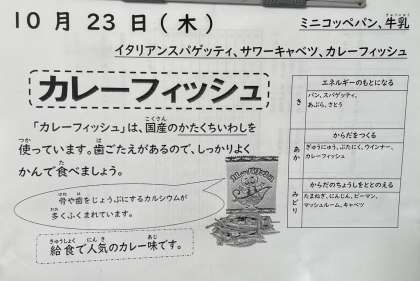 10月23日(木)
ミニコッペパン、牛乳
イタリアンスパゲッティ、サワーキャベツ、カレーフィッシュ
カレーフィッシュ
「カレーフィッシュ」は、国産のかたくちいわしを
使っています。歯ごたえがあるので、しっかりよく
かんで食べましょう。
骨や歯をじょうぶにするカルシウムが
多くふくまれています。
給食で人気のカレー味です。
エネルギーのもとになる
き
パン、スパゲッティ、
あぶら、さとう
からだをつくる
あか
ぎゅうにゅう、ぶたにく、ウインナー、
カレーフィッシュ
からだのちょうしをととのえる
みどり
たまねぎ、にんじん、ピーマン、
マッシュルーム、キャベツ